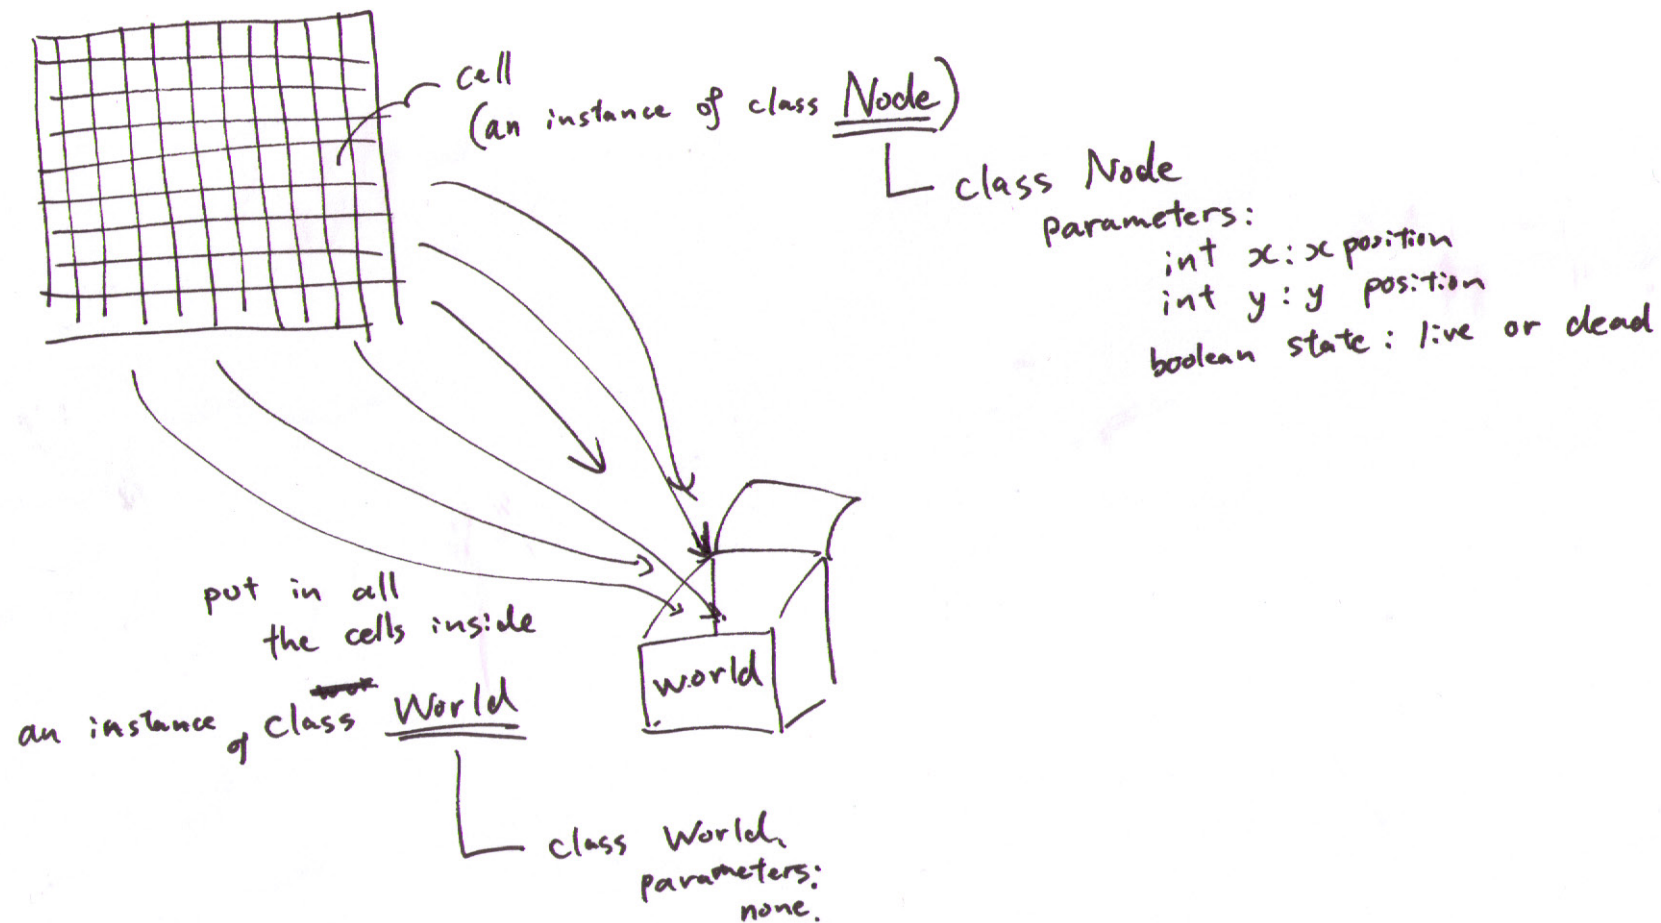 cell
(an instance of class Node)
class Node
parameters:
int x : x position
int y : y position
boolean state : live or dead
put in all
the cells inside
an instance of class World
world
class World
parameters:
none.